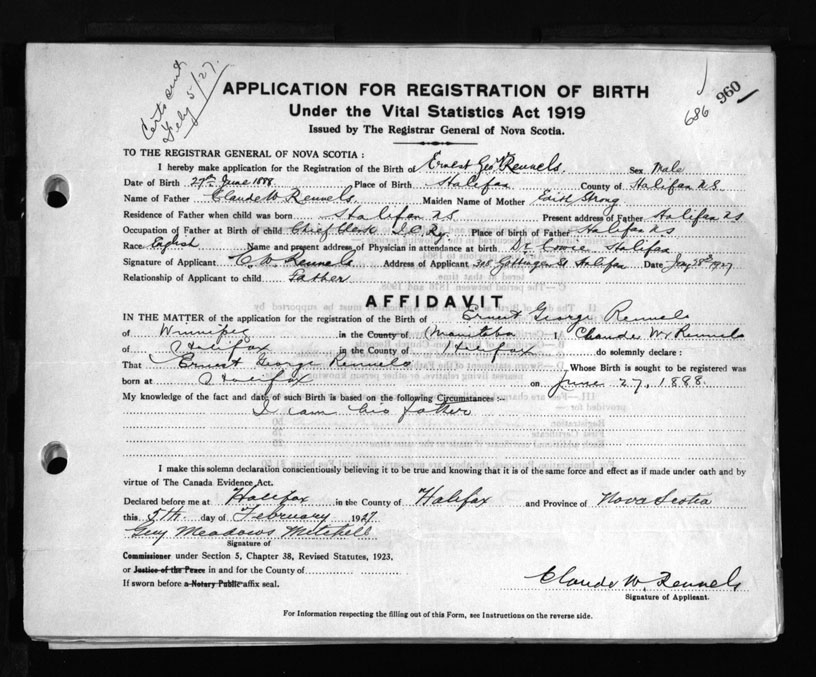 Certs sent
Feby 5/27.
686
960
APPLICATION FOR REGISTRATION OF BIRTH
Under the Vital Statistics Act 1919
Issued by The Registrar General of Nova Scotia.
TO THE REGISTRAR GENERAL OF NOVA SCOTIA :
I hereby make application for the Registration of the Birth of Ernest Geo Rennels. Sex Male
Date of Birth 27th June 1888 Place of Birth Halifax County of Halifax N.S.
Name of Father Claude W Rennels. Maiden Name of Mother Edith Strong
Residence of Father when child was born Halifax NS Present address of Father Halifax NS
Occupation of Father at Birth of child Chief Clerk I.C.Ry. Place of birth of Father Halifax NS
Race English Name and present address of Physician in attendance at birth Dr Cowie Halifax
Signature of Applicant C. W. Rennels Address of Applicant Gottingen St Halifax Date Jany 28th 1927
Relationship of Applicant to child Father
AFFIDAVIT
IN THE MATTER of the application for the registration of the Birth of Ernest George Rennels
of Winnipeg in the County of Manitoba I, Claude W. Rennels
of Halifax in the County of Halifax do solemnly declare :
That Ernest George Rennels Whose Birth is sought to be registered was
born at Halifax on June 27, 1888.
My knowledge of the fact and date of such Birth is based on the following Circumstances :-
I am his father
I make this solemn declaration conscientiously believing it to be true and knowing that it is of the same force and effect as if made under oath and by
virtue of The Canada Evidence Act.
Declared before me at Halifax in the County of Halifax and Province of Nova Scotia
this 5th day of February 1927
Guy Meadows Mitchell
Signature of
Commissioner under Section 5, Chapter 38, Revised Statutes, 1923,
or Justice of the Peace in and for the County of
If sworn before a Notary Public affix seal.
Claude W. Rennels
Signature of Applicant.
For Information respecting the filling out of this Form, see Instructions on the reverse side.